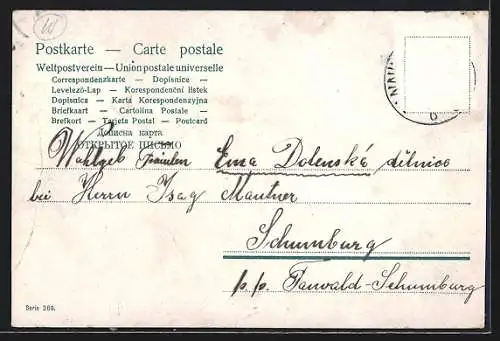 Postkarte — Carte postale
Weltpostverein — Union postale universelle
Correspondenzkarte — Dopisnice —
Levelező-Lap — Korespondenční lístek
Dopisnica — Karta Korespondenzyjna
Briefkaart — Cartolina Postale —
Brefkort — Tarjeta Postal — Postcard
Дописна карта
ОТКРЫТОЕ ПИСЬМО
Wohlgeb Fräulen Ema Dolenská dělnice
bei Herrn Isag Mautner
Schumburg
p. p. Tanwald-Schumburg
Serie 369.